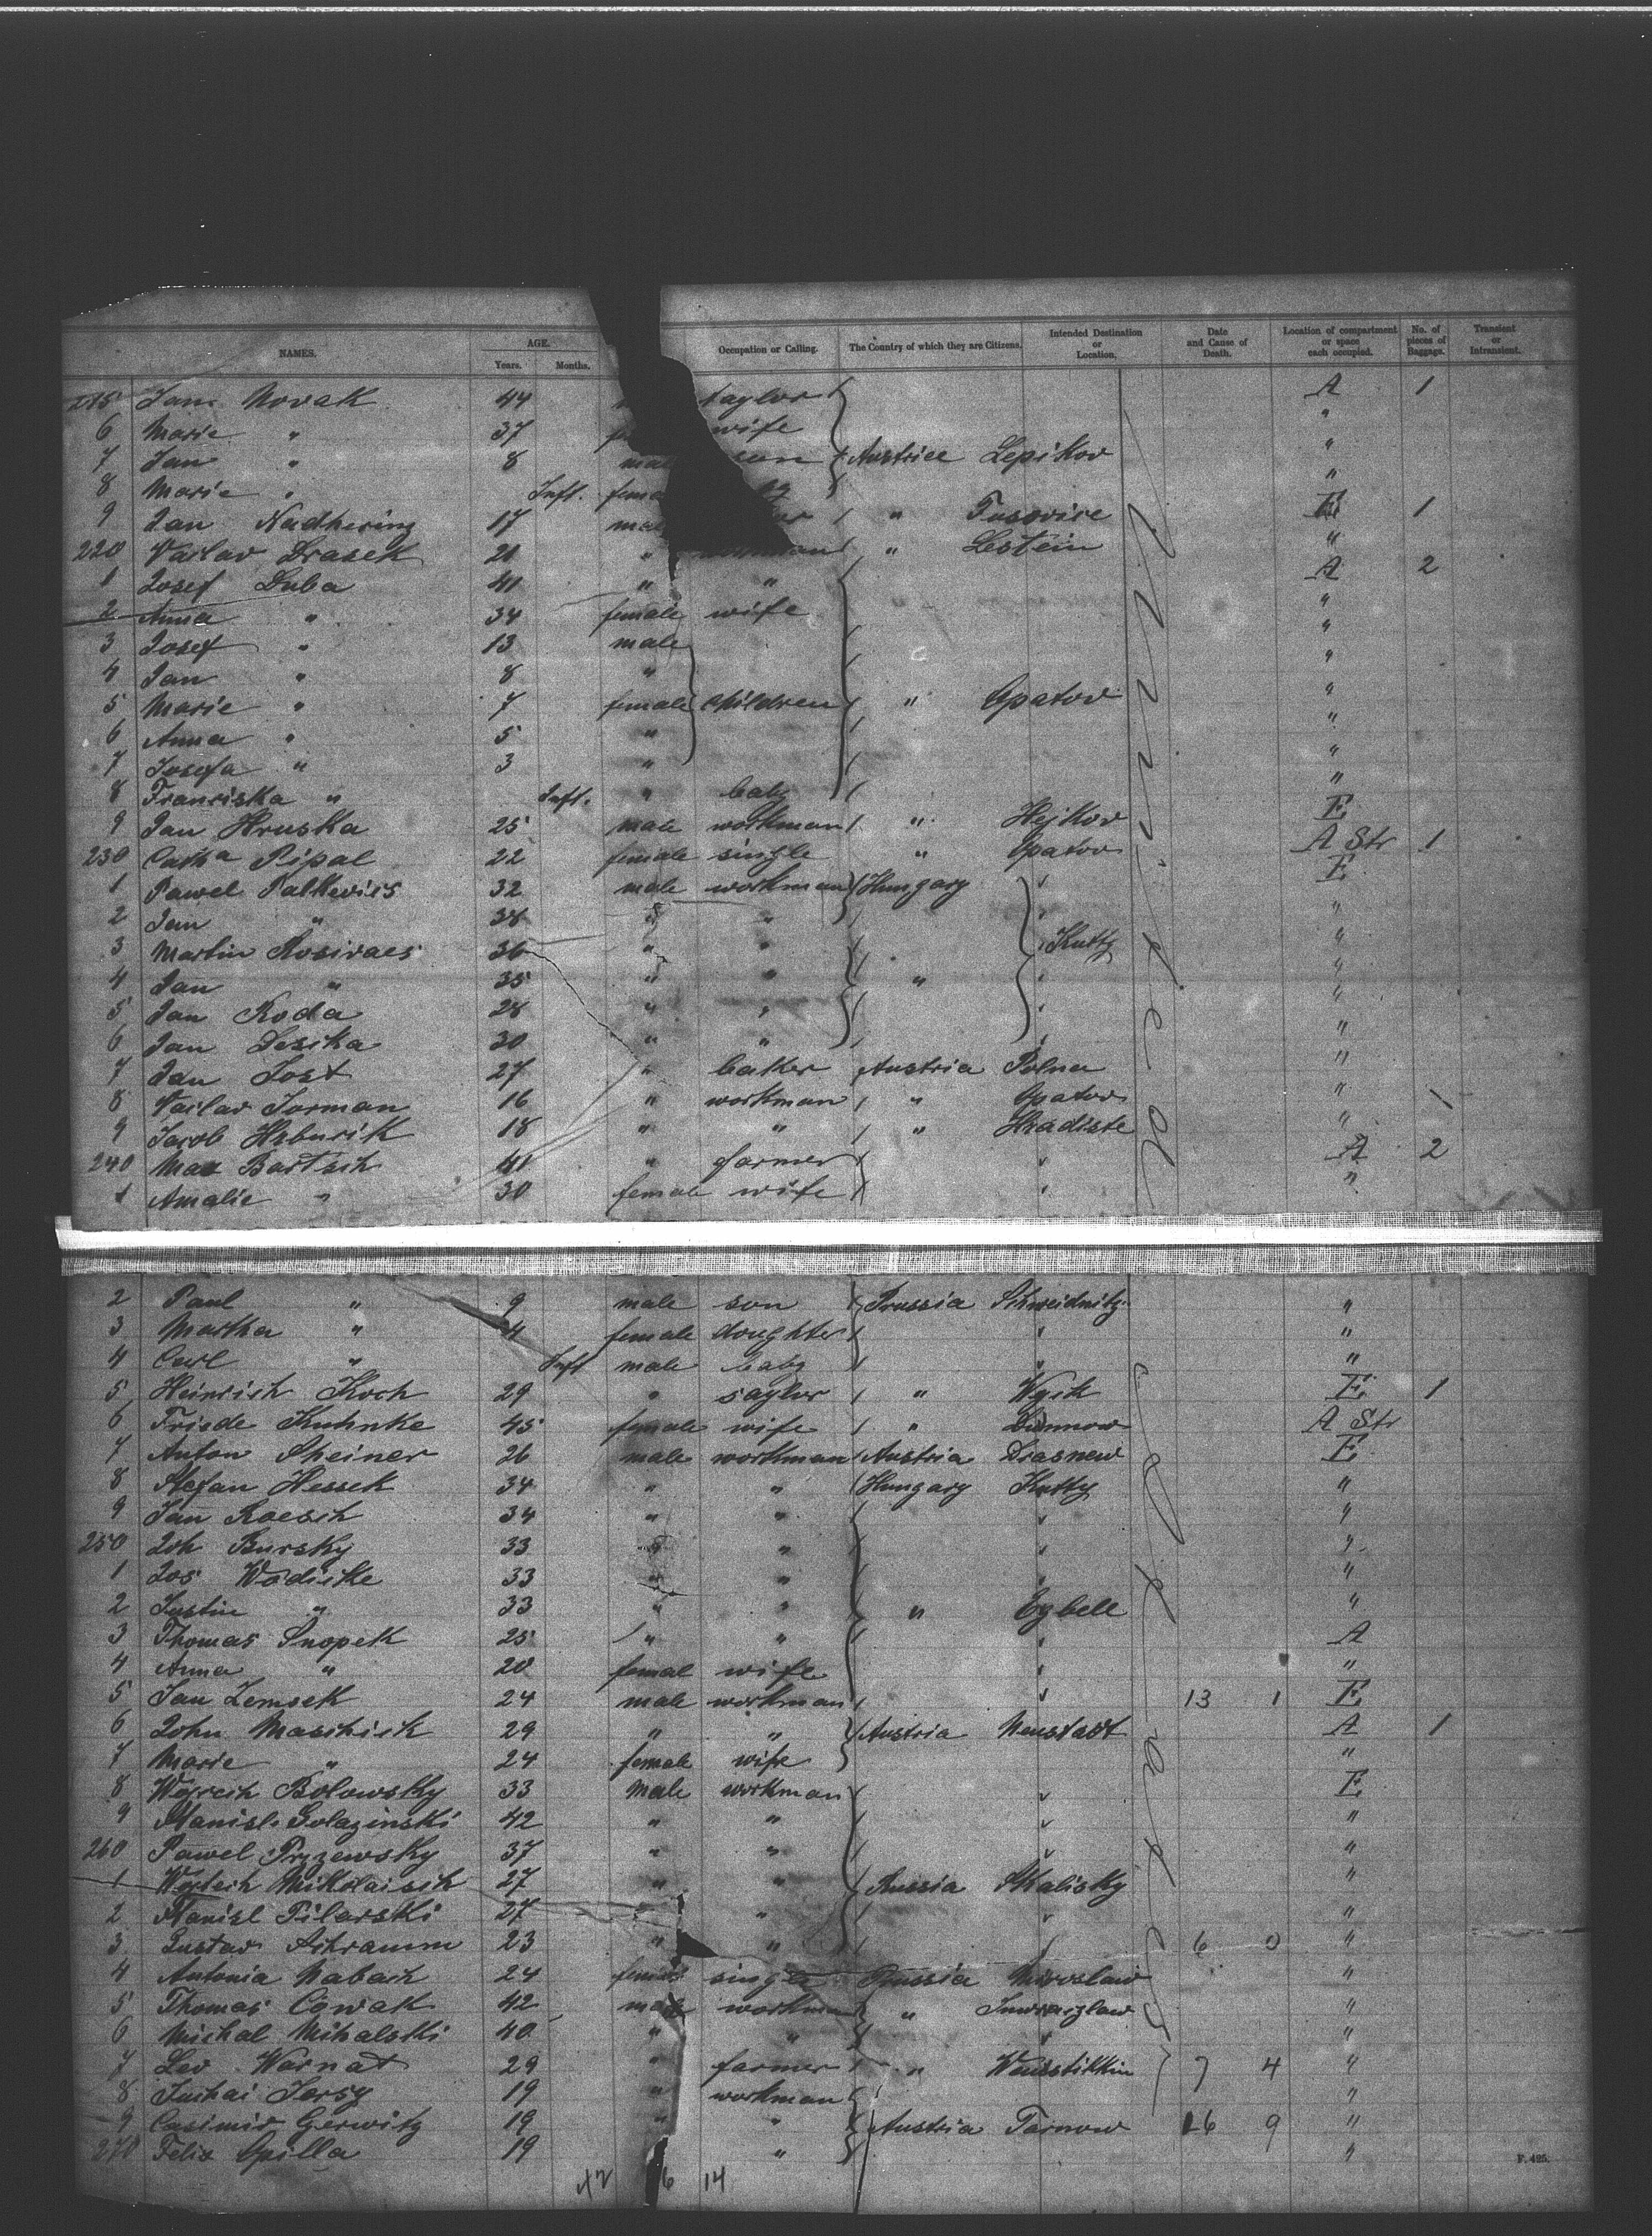 NAMES. AGE. Years. Months. Occupation or Calling. The Country of which they are Citizens. Intended Destination or Location. Date and Cause of Death. Location of compartment or space each occupied. No. of pieces of Baggage. Transient or Intransient.
215 Jan Novak 44 taylor A 1
6 Marie " 37 wife "
7 Jan " 8 mal son Austria Lepikov "
8 Marie " Inft. fema "
9 Jan Nadhering 17 mal " Tusovice E 1
220 Vaclav Drasek 21 " " Lestein "
1 Josef Duba 41 " " A 2
2 Anna " 34 female wife "
3 Josef " 13 male "
4 Jan " 8 " "
5 Marie " 7 female children " Opatov "
6 Anna " 5 " "
7 Josefa " 3 " "
8 Franciska " Inft. " baby "
9 Jan Hruska 25 male workman " Hejkov E
230 Catha Pipal 22 female single " Opatov A Str 1
1 Pawel Palkevics 32 male workman Hungary " E
2 Jan " 38 " " "
3 Martin Rosivaes 36 " " Kutty "
4 Jan " 35 " " " "
5 Jan Koda 28 " " "
6 Jan Desika 30 " " "
7 Jan Jost 27 " baker Austria Polna "
8 Vaclav Jorman 16 " workman " Opatov " 1
9 Jacob Hrburik 18 " " " Hradiste "
240 Max Bartsch 41 " farmer " A 2
1 Amalie " 30 female wife " "
2 Paul " 9 male son Prussia Schweidnitz "
3 Martha " 4 female doughter " "
4 Carl " Inft male baby " "
5 Heinrich Koch 29 " saylor " Wyck E 1
6 Friede Kuhnke 45 female wife " Dunnow A Str
7 Anton Scheiner 26 male workman Austria Drasnew E
8 Stefan Hessek 34 " " Hungary Kutty "
9 Jan Roesch 34 " " " "
250 Joh Bursky 33 " " " "
1 Jos Wodicke 33 " " " "
2 Justin " 33 " " " Egbell "
3 Thomas Snopek 25 " " " A
4 Anna " 20 femal wife " "
5 Jan Zemsek 24 male workman " 13 1 E
6 John Maschick 29 " " Austria Neustadt A 1
7 Marie " 24 female wife "
8 Wojcech Bolowsky 33 male workman " E
9 Stanisl. Golazinski 42 " " " "
260 Pawel Pryzewsky 37 " " " "
1 Wojtech Mikolaisik 27 " " Russia Skalisky "
2 Stanisl Pilarski 27 " " " "
3 Gustav Schramm 23 " " " 6 0 "
4 Antonia Nabach 24 female single Russia Miroslaw "
5 Thomas Cowak 42 male workman " Inwraczlaw "
6 Michal Mihalski 40 " " " "
7 Leo Warnat 29 " farmer " 7 4 "
8 Juchai Jersy 19 " workman "
9 Casimir Gerwitz 19 " " Austria Tarnow 16 9 "
270 Felix Opilla 19 " "
42 6 14
F. 425.